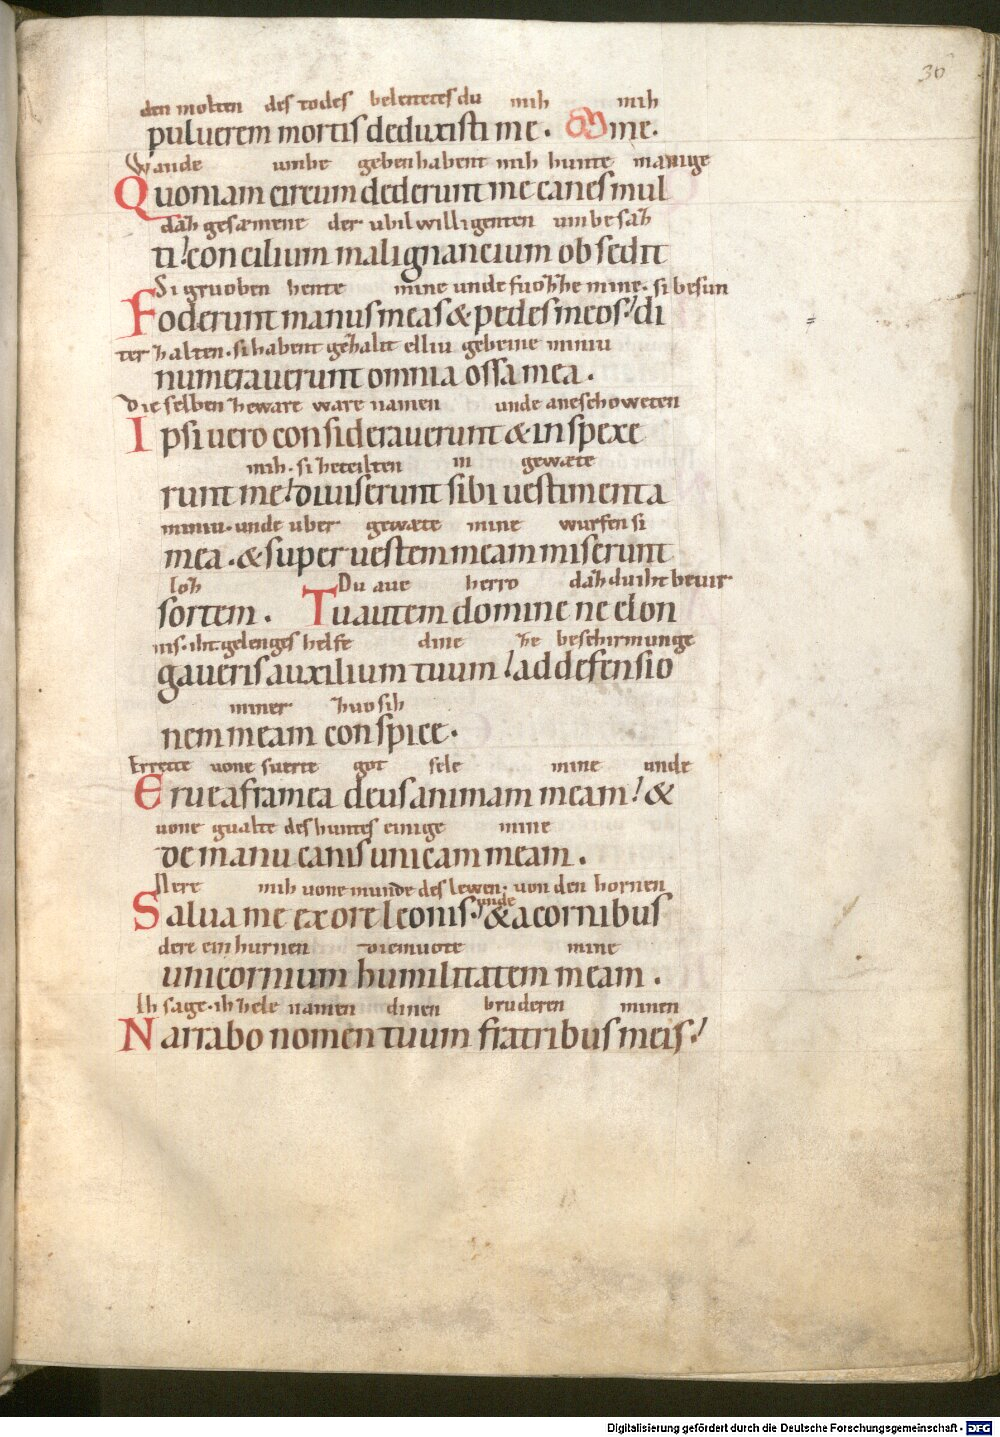 36
den molten des todes beleitetes du mih mih
puluerem mortis deduxisti me. me.
Wande umbe geben habent mih hunte manige
Quoniam circum dederunt me canes mul
daʒ gesæmene der ubilwilligenten umbesaʒ
ti: concilium malignancium obsedit
Si gruoben hente mine unde fuoʒʒe mine. si besun
Foderunt manus meas & pedes meos: di
ter ʒalten. si habent geʒalit elliu gebeine miniu
numerauerunt omnia ossa mea.
Die selben ʒeware ware namen unde aneschoweten
Ipsi uero considerauerunt & inspexe
mih. si ʒeteilten in gewæte
runt me: diuiserunt sibi uestimenta
miniu. unde uber gewæte mine wurfen si
mea. & super uestem meam miserunt
loʒ Du aue herro daʒ du iht beuir
sortem. Tu autem domine ne elon
nis. iht gelenges helfe dine ʒe beschirmunge
gaueris auxilium tuum: ad defensio
miner ʒuo sih
nem meam conspice.
Errette uone suerte got sele mine unde
Erue a framea deus animam meam: &
uone gualte des huntes einige mine
de manu canis unicam meam.
Nere mih uone munde des lewen. von den hornen
unde
Salua me ex ore leonis: & a cornibus
dere einhurnen diemuote mine
unicornium humilitatem meam.
Ih sage. ih ʒele namen dinen bruderen minen
Narrabo nomen tuum fratribus meis:
Digitalisierung gefördert durch die Deutsche Forschungsgemeinschaft - DFG